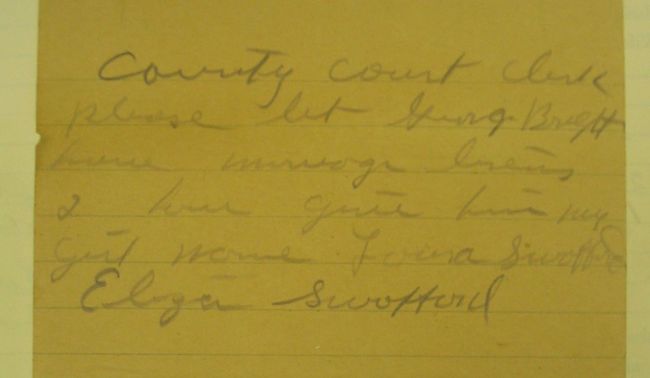 County court clerk
please let George Bright
have marriage lisens
I have give him my
girl name Loura Swofford
Elizar Swofford